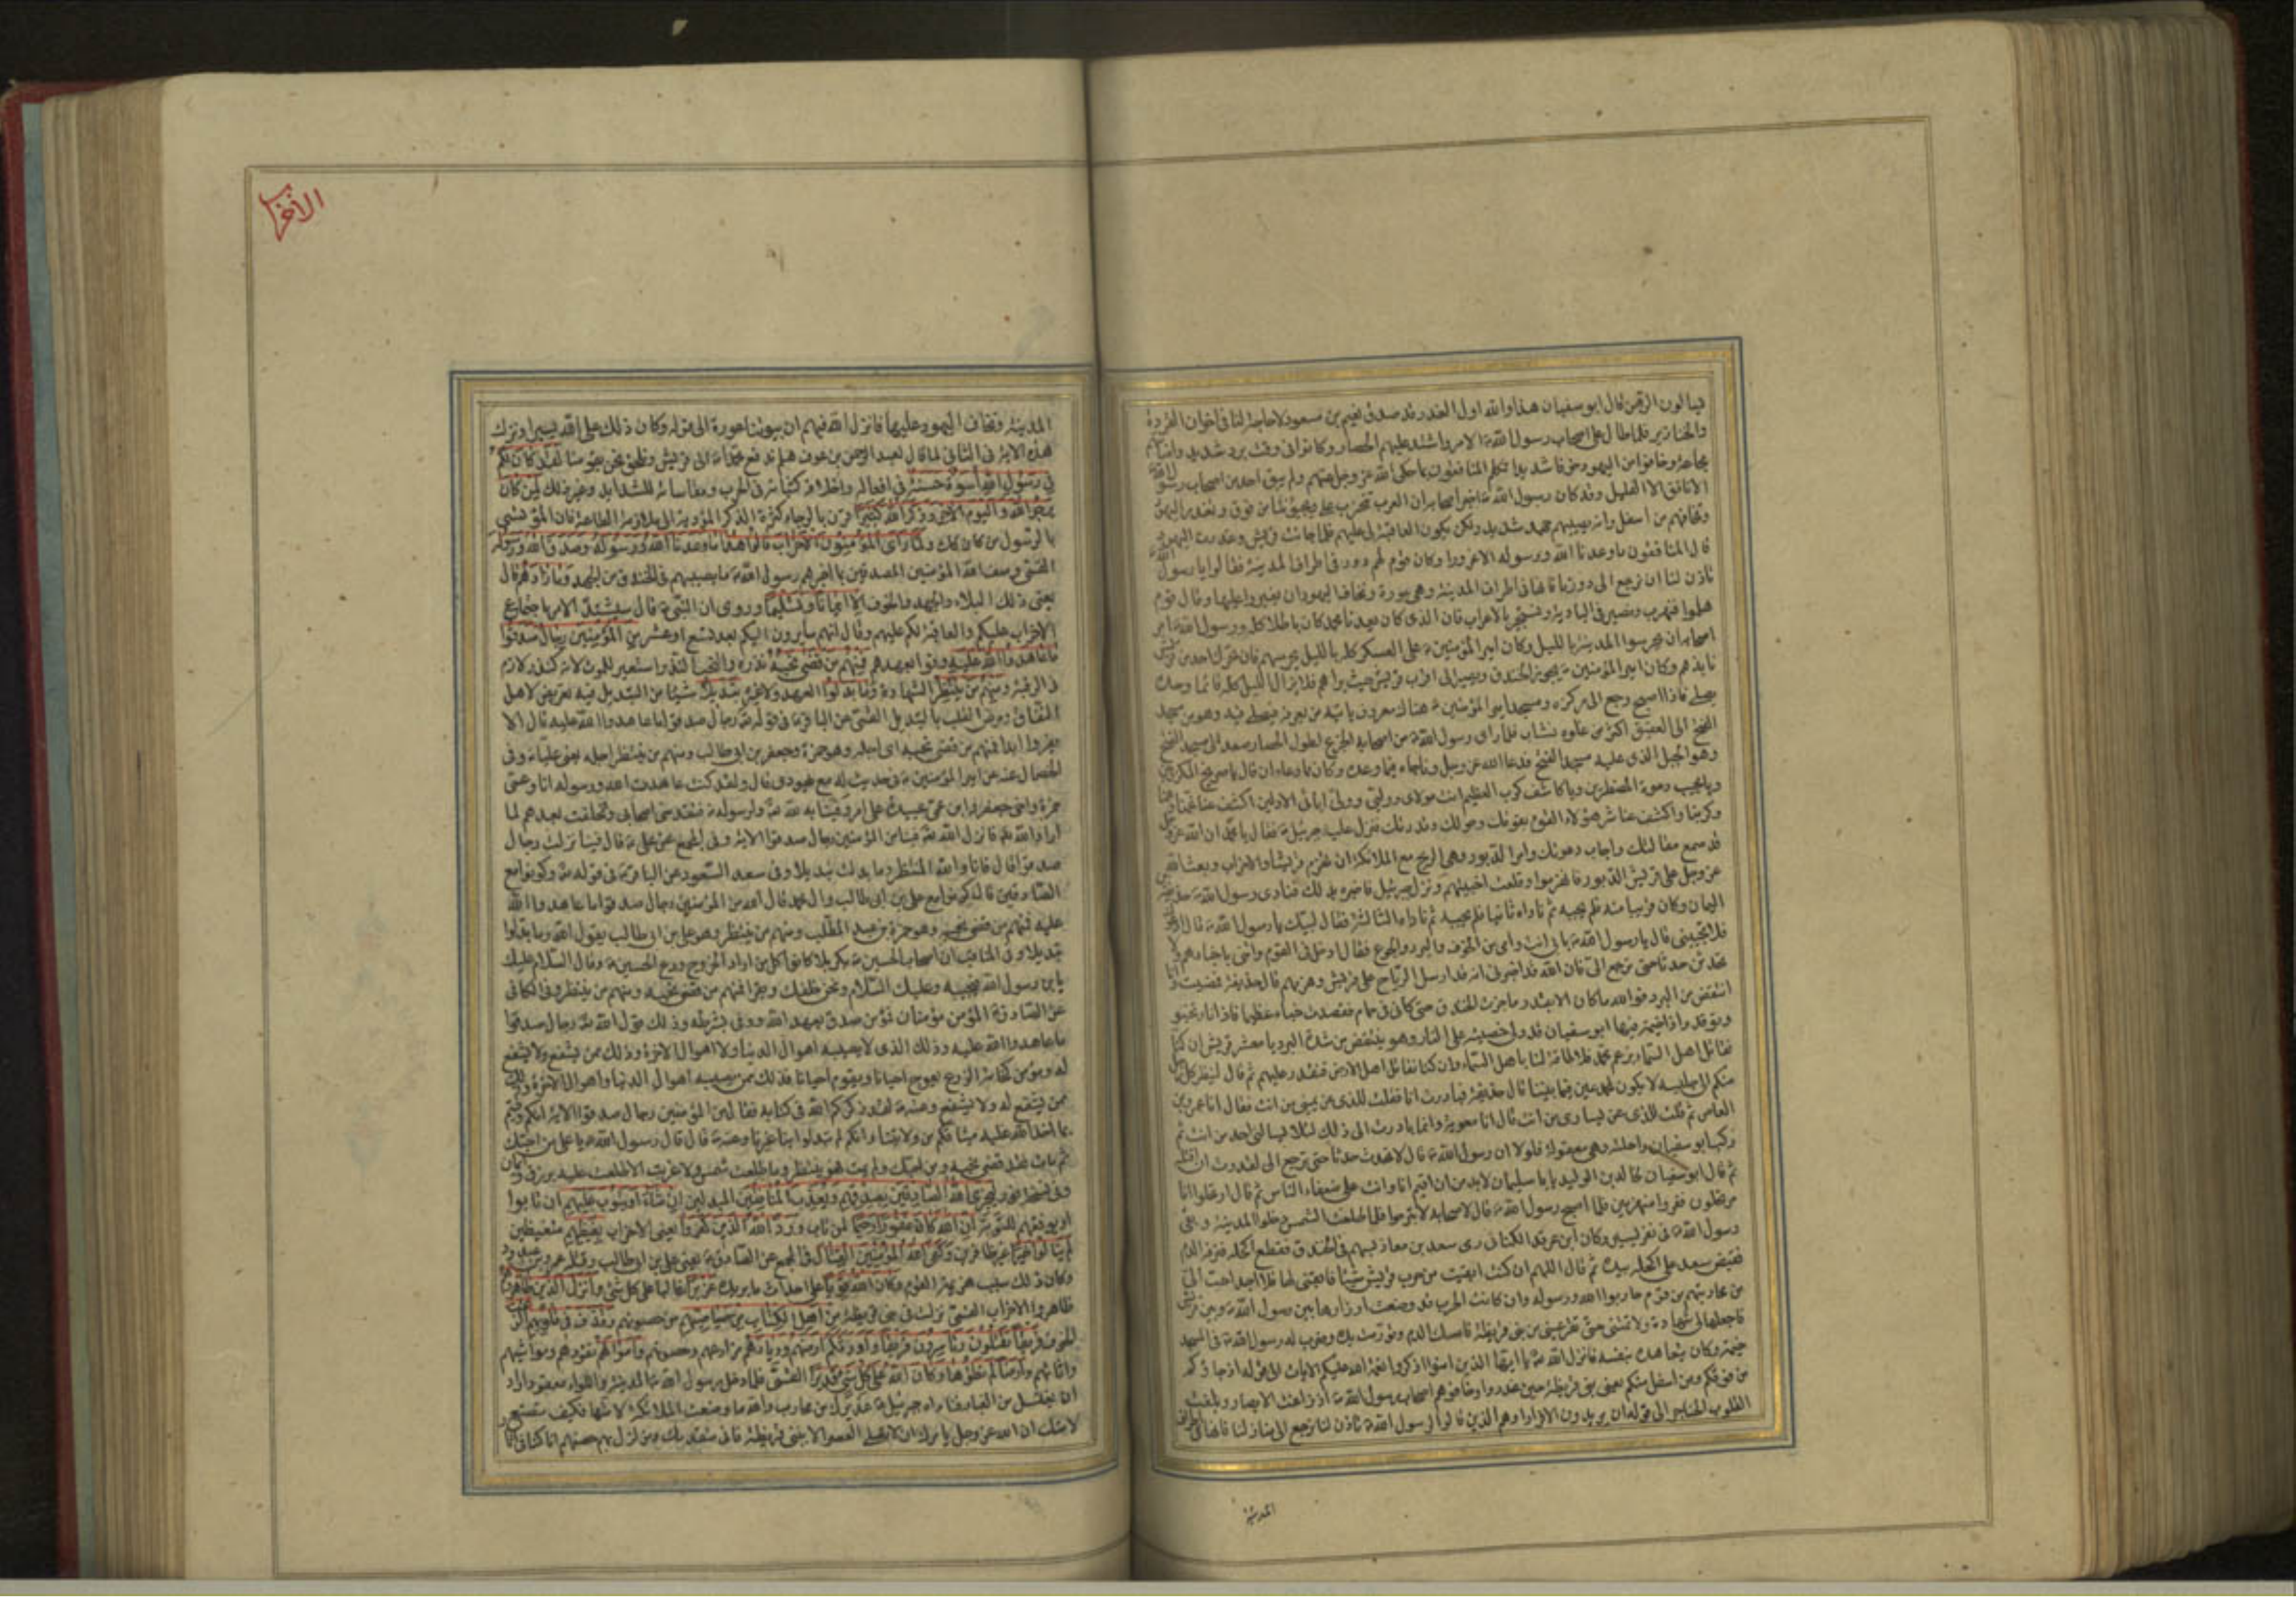 فيالون الرهن قال ابو سفيان هذا والله اول الغدر قد صدق نعيم بن مسعود لا حاجة لنا فى اخوان القردة
والخنازير فلما طال على اصحاب رسول الله الامر واشتد عليهم الحصار وكانوا فى وقت برد شديد واصابتهم
مجاعة وخافوا من اليهود خوفا شديدا تكلم المنافقون بما حكى الله عز وجل عنهم ولم يبق احد من اصحاب رسول الله
الا نافق الا القليل وقد كان رسول الله اخبر اصحابه ان العرب تتحزب على ويجيؤننا من فوق وتغدر اليهود
ونخافهم من اسفل وانه يصيبهم جهد شديد ولكن يكون العاقبة لى عليهم فلما جائت قريش وغدرت اليهود
قال المنافقون ما وعدنا الله ورسوله الا غرورا وكان قوم لهم دور فى اطراف المدينة فقالوا يا رسول الله
تاذن لنا ان نرجع الى دورنا فانها فى اطراف المدينة وهى عورة ونخاف اليهود ان يغيروا عليها وقال قوم
هلموا فنهرب ونصير فى البادية ونستجير بالاعراب فان الذى كان يعدنا محمد كان باطلا كله ورسول الله امر
اصحابه ان يحرسوا المدينة بالليل وكان امير المؤمنين على العسكر كله بالليل يحرسهم فان تحرك احد من قريش
نابذهم وكان امير المؤمنين يجوز الخندق ويصير الى قرب قريش حيث يراهم فلا يزال الليل كله قائما وحده
يصلى فاذا اصبح رجع الى مركزه ومسجد امير المؤمنين هناك معروف ياتيه من يعرفه فيصلى فيه وهو من مسجد
الفتح الى العقيق اكثر من غلوه نشاب فلما راى رسول الله من اصحابه الجزع لطول الحصار صعد الى مسجد الفتح
وهو الجبل الذى عليه مسجد الفتح فدعا الله عز وجل وناجاه فيما وعده وكان مما دعاه ان قال يا صريخ المكروبين
ويا مجيب دعوة المضطرين ويا كاشف كرب العظيم انت مولاى ووليى وولى ابائى الاولين اكشف عنا غمنا وهمنا
وكربنا واكشف عنا شر هؤلاء القوم بقوتك وحولك وقدرتك فنزل عليه جبرئيل فقال يا محمد ان الله عز وجل
قد سمع مقالتك واجاب دعوتك وامر الدبور وهى الريح مع الملائكة ان تهزم قريشا والاحزاب وبعث الله
عز وجل على قريش الدبور فانهزموا وقلعت اخبيتهم ونزل جبرئيل فاخبره بذلك فنادى رسول الله حذيفة بن
اليمان وكان قريبا منه فلم يجبه ثم ناداه ثانيا فلم يجبه ثم ناداه الثالثة فقال لبيك يا رسول الله قال ادعوك
فلا تجيبنى قال يا رسول الله بابى انت وامى من الخوف والبرد والجوع فقال ادخل فى القوم وائتنى باخبارهم ولا
تحدثن حدثا حتى ترجع الى فان الله قد اخبرنى انه قد ارسل الرياح على قريش وهزمهم قال حذيفة فمضيت وانا
انتفض من البرد فوالله ما كان الا بقدر ما جزت الخندق حتى كانى فى حمام فقصدت خباء عظيما فاذا نار تخبو
وتوقد واذا خيمة فيها ابو سفيان قد دلى خصيتيه على النار وهو ينتفض من شدة البرد يا معشر قريش ان كنا
نقاتل اهل السماء بزعم محمد فلا طاقة لنا باهل السماء وان كنا نقاتل اهل الارض فنقدر عليهم ثم قال لينظر كل رجل
منكم الى جليسه لا يكون لمحمد عين فيما بيننا قال حذيفة فبادرت انا فقلت للذى عن يمينى من انت فقال انا عمرو بن
العاص ثم قلت للذى عن يسارى من انت قال انا معوية وانما بادرت الى ذلك لئلا يسالنى احد من انت ثم
ركب ابو سفيان راحلته وهى معقولة فلولا ان رسول الله قال لا تحدث حدثا حتى ترجع الى لقدرت ان اقتله
ثم قال ابو سفيان لخالد بن الوليد يا با سليمان لابد من ان اقيم انا وانت على ضعفاء الناس ثم قال ارتحلوا انا
مرتحلون ففروا منهزمين فلما اصبح رسول الله قال لاصحابه لا تبرحوا فلما طلعت الشمس دخلوا المدينة وبقى
رسول الله فى نفر يسير وكان ابن عرقد الكنانى رمى سعد بن معاذ بسهم فى الخندق فقطع اكحله فنزفه الدم
فقبض سعد على اكحله بيده ثم قال اللهم ان كنت ابقيت من حرب قريش شيئا فابقنى لها فلا احد احب الى
من محاربتهم من قوم حاربوا الله ورسوله وان كانت الحرب قد وضعت اوزارها بين رسول الله وبين قريش
فاجعلها لى شهادة ولا تمتنى حتى تقر عينى من بنى قريظة فامسك الدم وتورمت يده وضرب له رسول الله فى المسجد
خيمة وكان يتعاهده بنفسه فانزل الله يا ايها الذين امنوا اذكروا نعمة الله عليكم الايات الى قوله اذ جاؤكم
من فوقكم ومن اسفل منكم يعنى بنى قريظة حين غدروا وخافوهم اصحاب رسول الله اذ زاغت الابصار وبلغت
القلوب الحناجر الى قوله ان يريدون الا فرارا وهم الذين قالوا لرسول الله تاذن لنا نرجع الى منازلنا فانها فى اطراف
المدينة
الاحزاب
المدينة ونخاف اليهود عليها فانزل الله فيهم ان بيوتنا عورة الى قوله وكان ذلك على الله يسيرا ونزلت
هذه الاية فى الثانى لما قال لعبد الرحمن بن عوف هلم ندفع محمدا الى قريش ونلحق نحن بقومنا لقد كان لكم
فى رسول الله اسوة حسنة فى افعاله واخلاقه كثباته فى الحرب ومقاساته للشدايد وغير ذلك لمن كان
يرجوا الله واليوم الاخر وذكر الله كثيرا قرن بالرجاء كثرة الذكر المؤدية الى ملازمة الطاعة فان المؤتسى
بالرسول من كان كذلك ولما راى المؤمنون الاحزاب قالوا هذا ما وعدنا الله ورسوله وصدق الله ورسوله
القمى وصف الله المؤمنين المصدقين بما اخبرهم رسول الله ما يصيبهم فى الخندق من الجهد وما زادهم قال
يعنى ذلك البلاء والجهد والخوف الا ايمانا وتسليما وروى ان النبى قال سيشتد الامر باجتماع
الاحزاب عليكم والعاقبة لكم عليهم وقال انهم سايرون اليكم بعد تسع او عشر من المؤمنين رجال صدقوا
ما عاهدوا الله عليه وفوا بعهدهم فمنهم من قضى نحبه نذره والنحب النذر واستعير للموت لانه كنذر لازم
فى الرقبة ومنهم من ينتظر الشهادة وما بدلوا العهد ولا غيروه تبديلا شيئا من التبديل فيه تعريض لاهل
النفاق ومرض القلب بالتبديل القمى عن الباقر فى قوله رجال صدقوا ما عاهدوا الله عليه قال ان لا
يفروا ابدا فمنهم من قضى نحبه اى اجله وهو حمزة وجعفر بن ابى طالب ومنهم من ينتظر اجله يعنى عليا وفى
الخصال عنه عن امير المؤمنين فى حديث له مع يهودى قال ولقد كنت عاهدت الله ورسوله انا وعمى
حمزة واخى جعفر وابن عمى عبيدة على امر وفينا به لله ولرسوله فتقدمنى اصحابى وتخلفت بعدهم لما
اراد الله فانزل الله فينا من المؤمنين رجال صدقوا الاية وفى المجمع عن على قال فينا نزلت رجال
صدقوا قال فانا والله المنتظر وما بدلت تبديلا وفى سعد السعود عن الباقر فى قوله وكونوا مع
الصادقين قال كونوا مع على بن ابى طالب وال محمد قال الله من المؤمنين رجال صدقوا ما عاهدوا الله
عليه فمنهم من قضى نحبه وهو حمزة بن عبد المطلب ومنهم من ينتظر وهو على بن ابى طالب يقول الله وما بدلوا
تبديلا وفى المناقب ان اصحاب الحسين بكربلا كانوا كل من اراد الخروج ودع الحسين وقال السلام عليك
يا بن رسول الله فيجيبه وعليك السلام ونحن خلفك ويقرا فمنهم من قضى نحبه ومنهم من ينتظر وفى الكافى
عن الصادق المؤمن مؤمنان فمؤمن صدق بعهد الله ووفى بشرطه وذلك قول الله رجال صدقوا
ما عاهدوا الله عليه وذلك الذى لا يصيبه اهوال الدنيا ولا اهوال الاخرة وذلك ممن يشفع ولا يشفع
له ومؤمن كخامة الزرع يعوج احيانا ويقوم احيانا فذلك ممن يصيبه اهوال الدنيا واهوال الاخرة وذلك
ممن يشفع له ولا يشفع وعنه لقد ذكركم الله فى كتابه فقال من المؤمنين رجال صدقوا الاية انكم وفيتم
بما اخذ الله عليه ميثاقكم من ولايتنا وانكم لم تبدلوا بنا غيرنا وعنه قال قال رسول الله يا على من احبك
ثم مات فقد قضى نحبه ومن احبك ولم يمت فهو ينتظر وما طلعت شمس ولا غربت الا طلعت عليه برزق وايمان
وفى نسخة نور ليجزى الله الصادقين بصدقهم ويعذب المنافقين المبدلين ان شاء او يتوب عليهم ان تابوا
او يوفقهم للتوبة ان الله كان غفورا رحيما لمن تاب ورد الله الذين كفروا يعنى الاحزاب بغيظهم متغيظين
لم ينالوا خيرا غير ظافرين وكفى الله المؤمنين القتال فى المجمع عن الصادق يعنى على بن ابى طالب وقتله عمرو بن عبد ود
وكان ذلك سبب هزيمة القوم وكان الله قويا على احداث ما يريده عزيزا غالبا على كل شئ وانزل الذين ظاهروهم
ظاهروا الاحزاب القمى نزلت فى بنى قريظة من اهل الكتاب من صياصيهم من حصونهم وقذف فى قلوبهم الرعب
الخوف فريقا تقتلون وتاسرون فريقا واورثكم ارضهم وديارهم مزارعهم وحصونهم واموالهم نقودهم ومواشيهم
واثاثهم وارضا لم تطؤها وكان الله على كل شئ قديرا القمى فلما دخل رسول الله المدينة واللواء معقود اراد
ان يغتسل من الغبار فناداه جبرئيل عذيرك من محارب والله ما وضعت الملائكة لامتها فكيف تضع
لامتك ان الله عز وجل يامرك ان لا تصلى العصر الا ببنى قريظة فانى متقدمك ومزلزل بهم حصنهم انا كنا فى